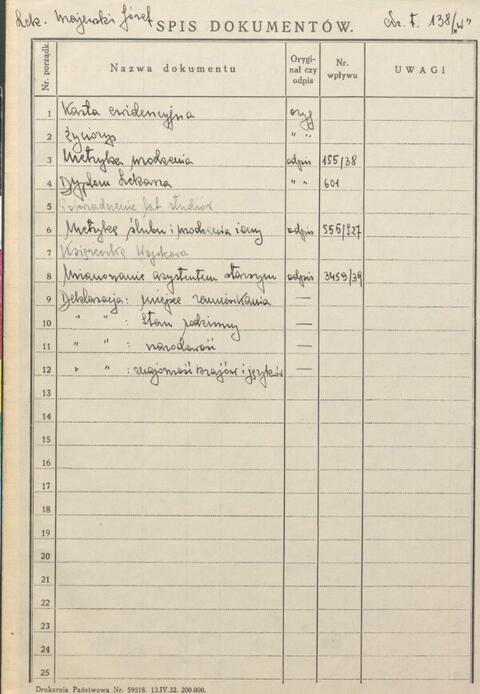 Lek. Majerski Józef
SPIS DOKUMENTÓW.
Nr. porządk.
Nazwa dokumentu
Orygi-
nał czy
odpis
Nr.
wpływu
UWAGI
1 Karta ewidencyjna oryg
2 Życiorys " "
3 Metryka urodzenia odpis 155/38
4 Dyplom Lekarza " " 601
5 Poświadczenie lat studiów
6 Metrykę ślubu i urodzenia żony odpis
7 Książeczkę Wojskową
8 Mianowanie asystentem starszym odpis 3459/39
9 Deklaracja: miejsce zamieszkania —
10 " " : stan rodzinny —
11 " " : narodowość —
12 " " : znajomość krajów i języków —
13
14
15
16
17
18
19
20
21
22
23
24
25
Drukarnia Państwowa Nr. 59518. 13.IV.32. 200.000.